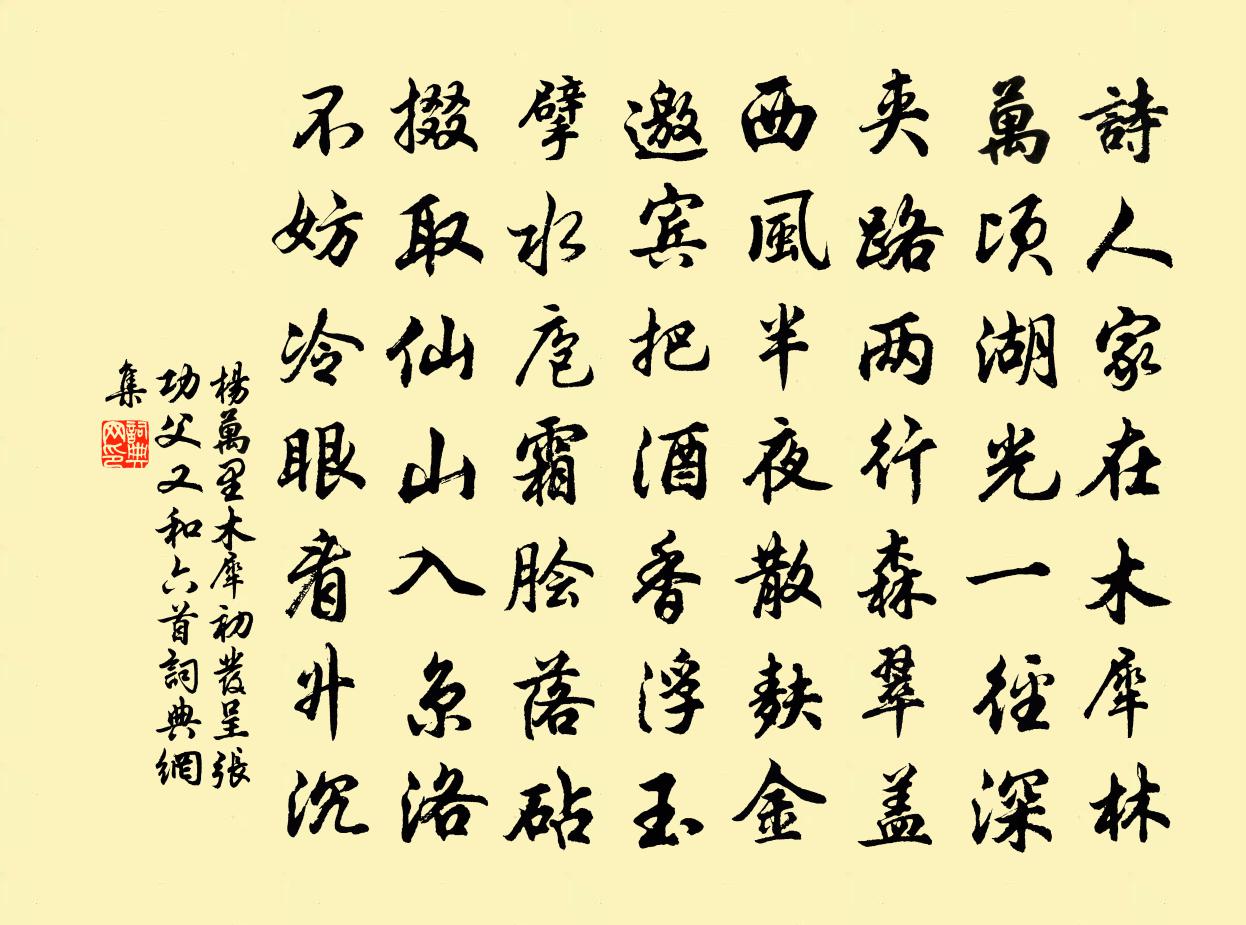 詩人家在木犀林
萬頃湖光一徑深
夾路两行森翠盖
西風半夜散麩金
邀宾把酒香浮玉
擘水庖霜脍落砧
掇取仙山入京洛
不妨冷眼看升沉
楊萬里木犀初發呈張
功父又和六首詞典網
集
詞典网印